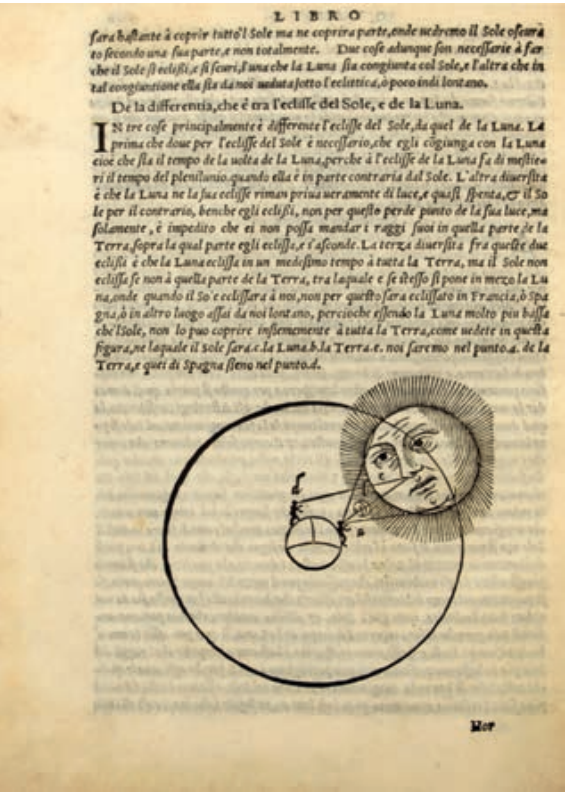 LIBRO
sara bastante à coprir tutto'l Sole ma ne coprira parte, onde uedremo il Sole oscura
to secondo una sua parte, e non totalmente. Due cose adunque son necessarie à far
che il Sole si eclissi, e si scuri, l'una che la Luna sia congiunta col Sole, e l'altra che in
tal congiuntione ella sia da noi ueduta sotto l'eclittica, ò poco indi lontano.
De la differentia, che è tra l'eclisse del Sole, e de la Luna.
IN tre cose principalmente è differente l'eclisse del Sole, da quel de la Luna. La
prima che doue per l'eclisse del Sole è necessario, che egli cōgiunga con la Luna
cioè che sia il tempo de la uolta de la Luna, perche à l'eclisse de la Luna fa di mestie-
ri il tempo del plenilunio. quando ella è in parte contraria dal Sole. L'altra diuersità
è che la Luna ne la sua eclisse riman priua ueramente di luce, e quasi spenta, & il So
le per il contrario, benche egli eclissi, non per questo perde punto de la sua luce, ma
solamente, è impedito che ei non possa mandar i raggi suoi in quella parte de la
Terra, sopra la qual parte eglissa, e s'asconde. La terza diuersità fra queste due
eclissi è che la Luna eclissa in un medesimo tempo à tutta la Terra, ma il Sole non
eclissa se non à quella parte de la Terra, tra laquale e se stesso si pone in mezo la Lu
na, onde quando il Sole eclissarà à noi, non per questo sara eclissato in Francia, ò Spa
gna, ò in altro luogo assai da noi lontano, percioche essendo la Luna molto piu bassa
che'l Sole, non lo puo coprire insiememente à tutta la Terra, come uedete in questa
figura, ne laquale il Sole sara.c. la Luna.b. la Terra.e. noi saremo nel punto.a. de la
Terra, e quei di Spagna sieno nel punto.d.
d
c
a
Hor